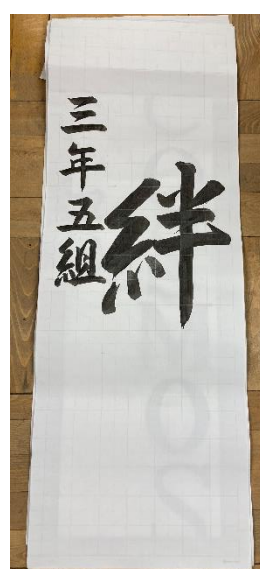 絆
三年五組